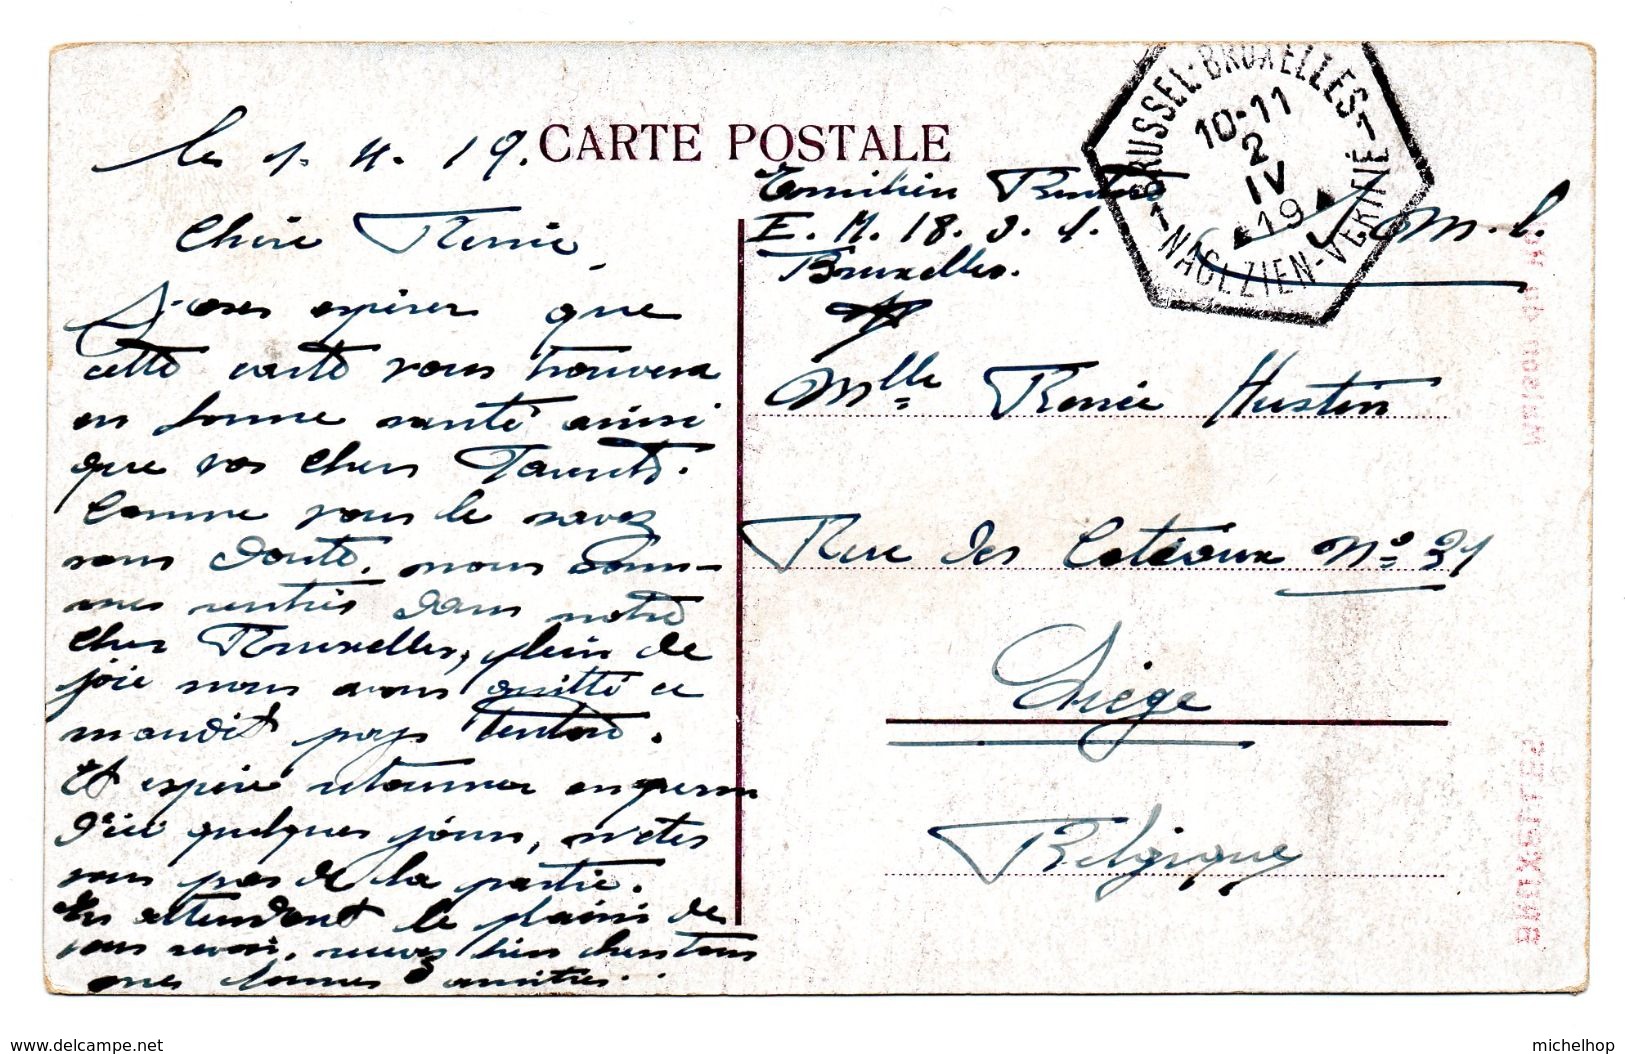 le 1. 4. 19.
CARTE POSTALE
BRUSSEL-BRUXELLES
10-11
2
IV
19
1 NAGEZIEN-VERIFIÉ 1
Emilien
E. M. 18. D. A.
Bruxelles.
S. M. b.
Chère Renée,
J'oses espérer que
cette carte vous trouvera
en bonne santé ainsi
que vos chers Parents.
Comme vous le savez
sans doute, nous som-
mes rentrés dans notre
cher Bruxelles, plein de
joie nous avons quitté ce
maudit pays
Et espère retourner en perm
d'ici quelques jours, n'etes
vous pas de la partie.
En attendant le plaisir de
vous revoir, recevez bien chers tous
mes bonnes amitiés.
Mlle Renée Hustin
Rue des Coteaux No 31
Liège
Belgique
BRUXELLES
www.delcampe.net
michelhop